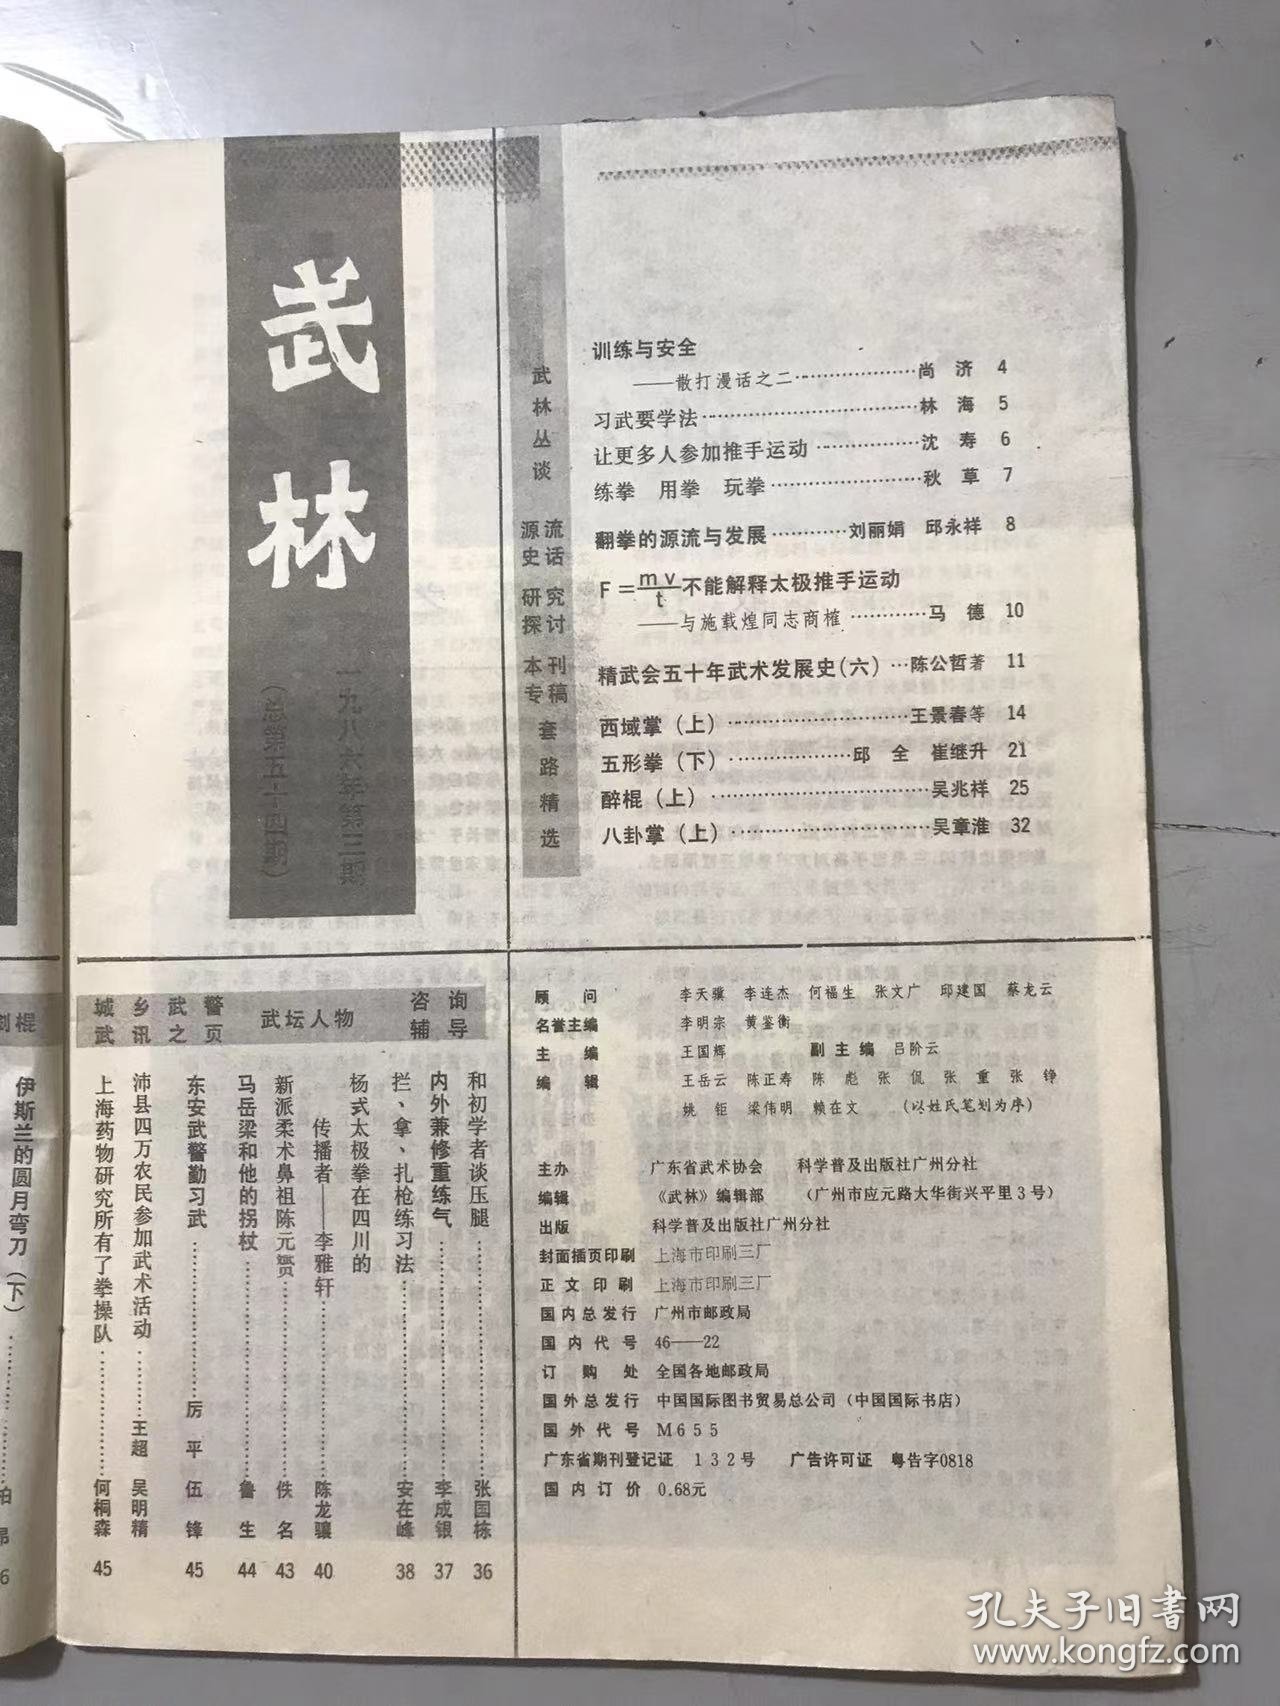 武林
一九八六年第三期
（总第五十四期）
武林丛谈
训练与安全
——散打漫话之二…………………尚 济 4
习武要学法…………………林 海 5
让更多人参加推手运动…………………沈 寿 6
练拳 用拳 玩拳…………………秋 草 7
源流史话
翻拳的源流与发展…………刘丽娟 邱永祥 8
研究探讨
F=mv/t不能解释太极推手运动
——与施载煌同志商榷…………马 德 10
本刊专稿
精武会五十年武术发展史(六)…陈公哲著 11
套路精选
西域掌（上）…………………王景春等 14
五形拳（下）…………………邱 全 崔继升 21
醉棍（上）…………………吴兆祥 25
八卦掌（上）…………………吴章淮 32
咨询辅导
和初学者谈压腿…………………张国栋 36
内外兼修重练气…………………李成银 37
拦、拿、扎枪练习法…………………安在峰 38
武坛人物
杨式太极拳在四川的
传播者——李雅轩…………………陈龙骧 40
新派柔术鼻祖陈元赟…………………佚 名 43
马岳梁和他的拐杖…………………鲁 生 44
武警之页
东安武警勤习武…………………厉 平 伍 锋 45
城乡武讯
沛县四万农民参加武术活动…………王超 吴明精
上海药物研究所有了拳操队…………………何桐森 45
顾问 李天骥 李连杰 何福生 张文广 邱建国 蔡龙云
名誉主编 李明宗 黄鉴衡
主编 王国辉 副主编 吕阶云
编辑 王岳云 陈正寿 陈 彪 张 侃 张 重 张 铮
姚 钜 梁伟明 赖在文 （以姓氏笔划为序）
主办 广东省武术协会 科学普及出版社广州分社
编辑 《武林》编辑部 （广州市应元路大华街兴平里3号）
出版 科学普及出版社广州分社
封面插页印刷 上海市印刷三厂
正文印刷 上海市印刷三厂
国内总发行 广州市邮政局
国内代号 46——22
订购处 全国各地邮政局
国外总发行 中国国际图书贸易总公司（中国国际书店）
国外代号 M655
广东省期刊登记证 132号 广告许可证 粤告字0818
国内订价 0.68元
伊斯兰的圆月弯刀（下）
孔夫子旧书网
www.kongfz.com